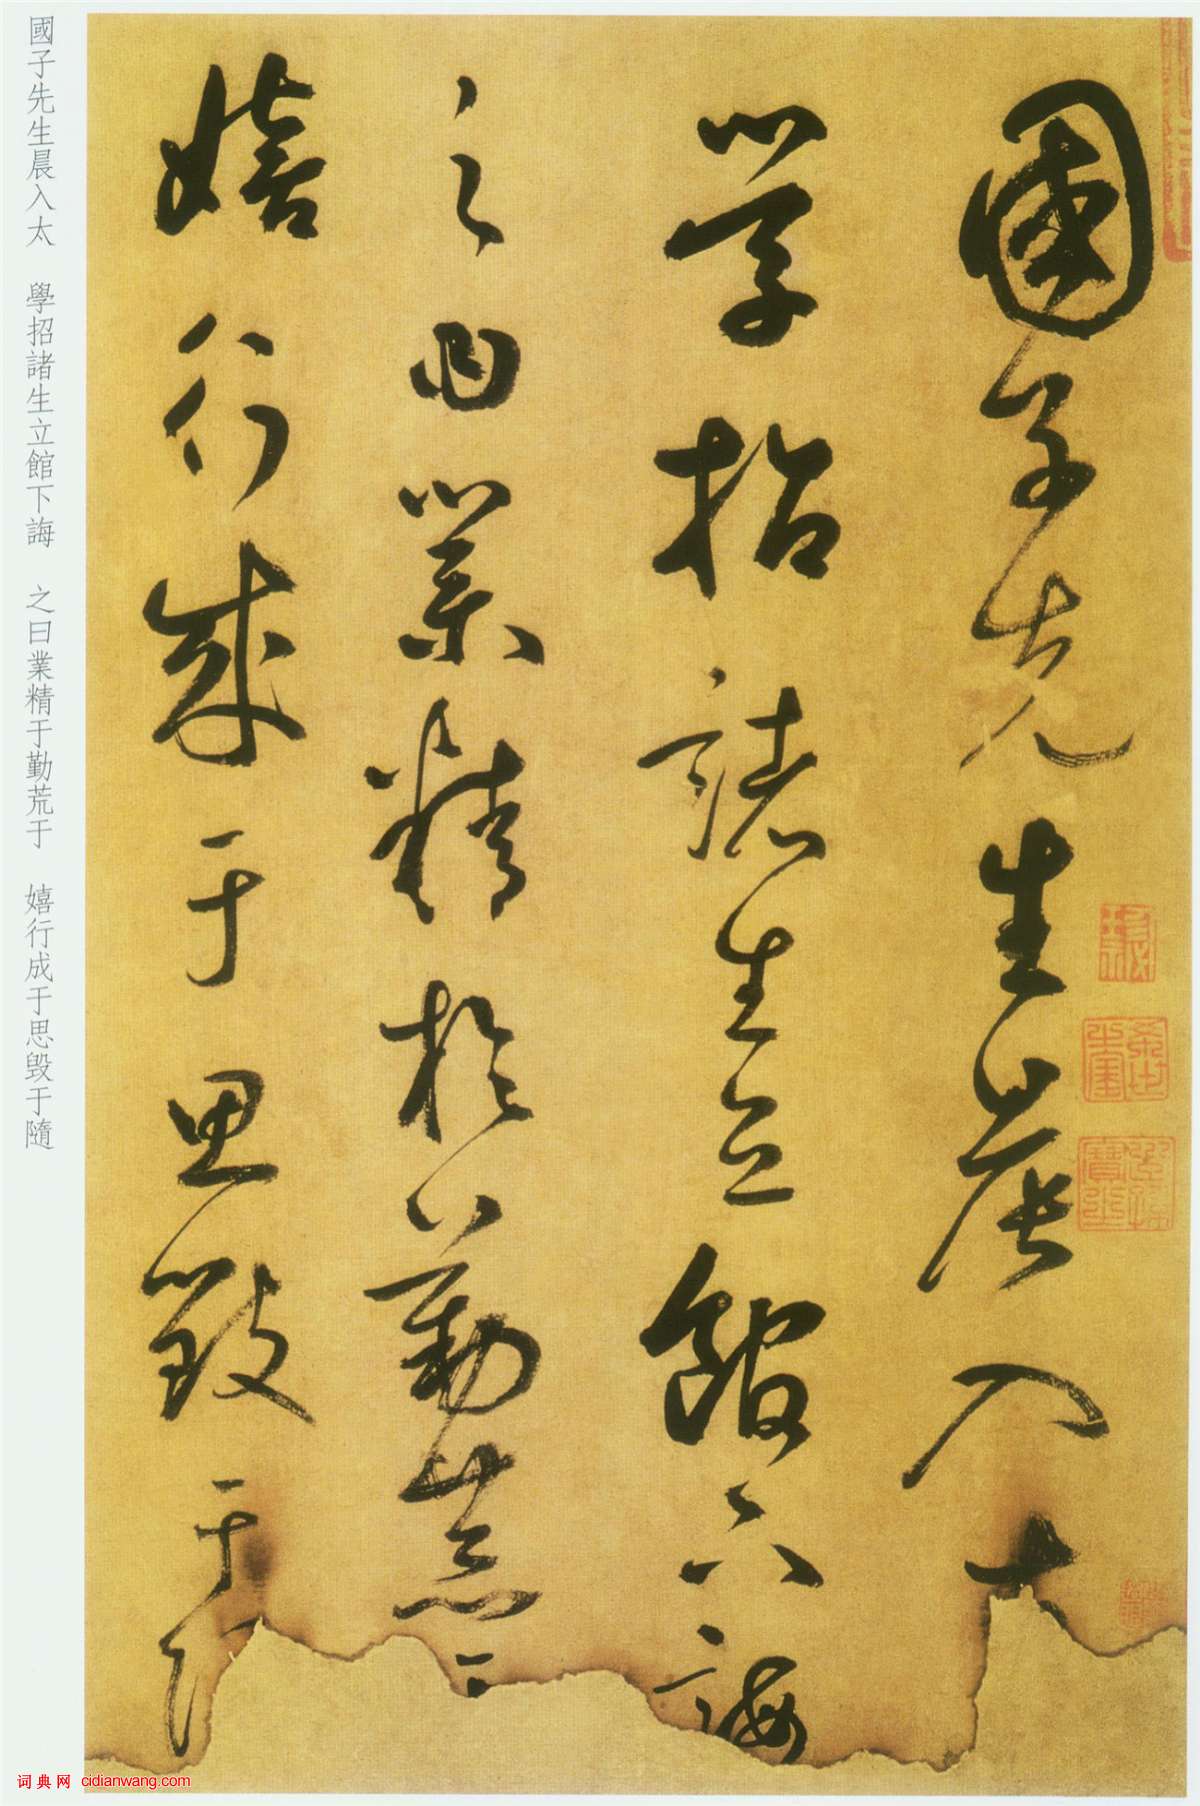 國子先生晨入太
學招諸生立館下誨
之曰業精於勤荒于
嬉行成于思毀于隨
國子先生晨入太 學招諸生立館下誨 之曰業精于勤荒于 嬉行成于思毀于隨
词典网 cidianwang.com